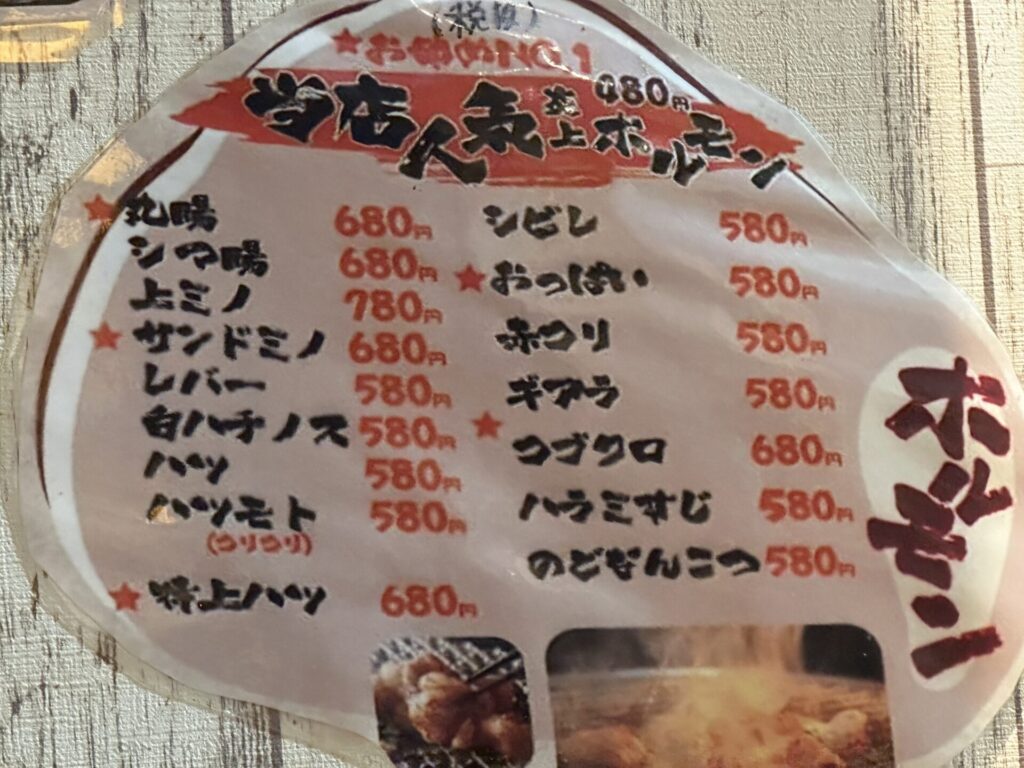 (税別)
★お勧めNO.1
当店人気 極上ホルモン 480円
★丸腸 680円
シマ腸 680円
上ミノ 780円
★サンドミノ 680円
レバー 580円
白ハチノス 580円
ハツ 580円
ハツモト 580円
(コリコリ)
★特上ハツ 680円
シビレ 580円
★おっぱい 580円
赤コリ 580円
ギアラ 580円
★コブクロ 680円
ハラミすじ 580円
のどなんこつ 580円
ホルモン